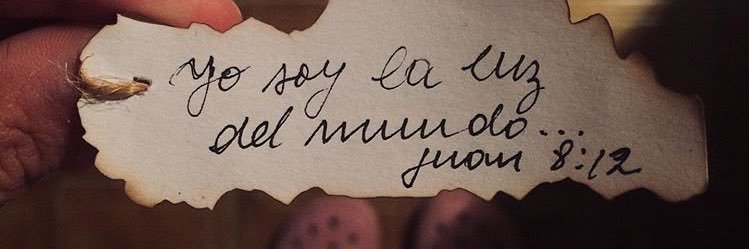 Yo soy la luz
del mundo...
Juan 8:12